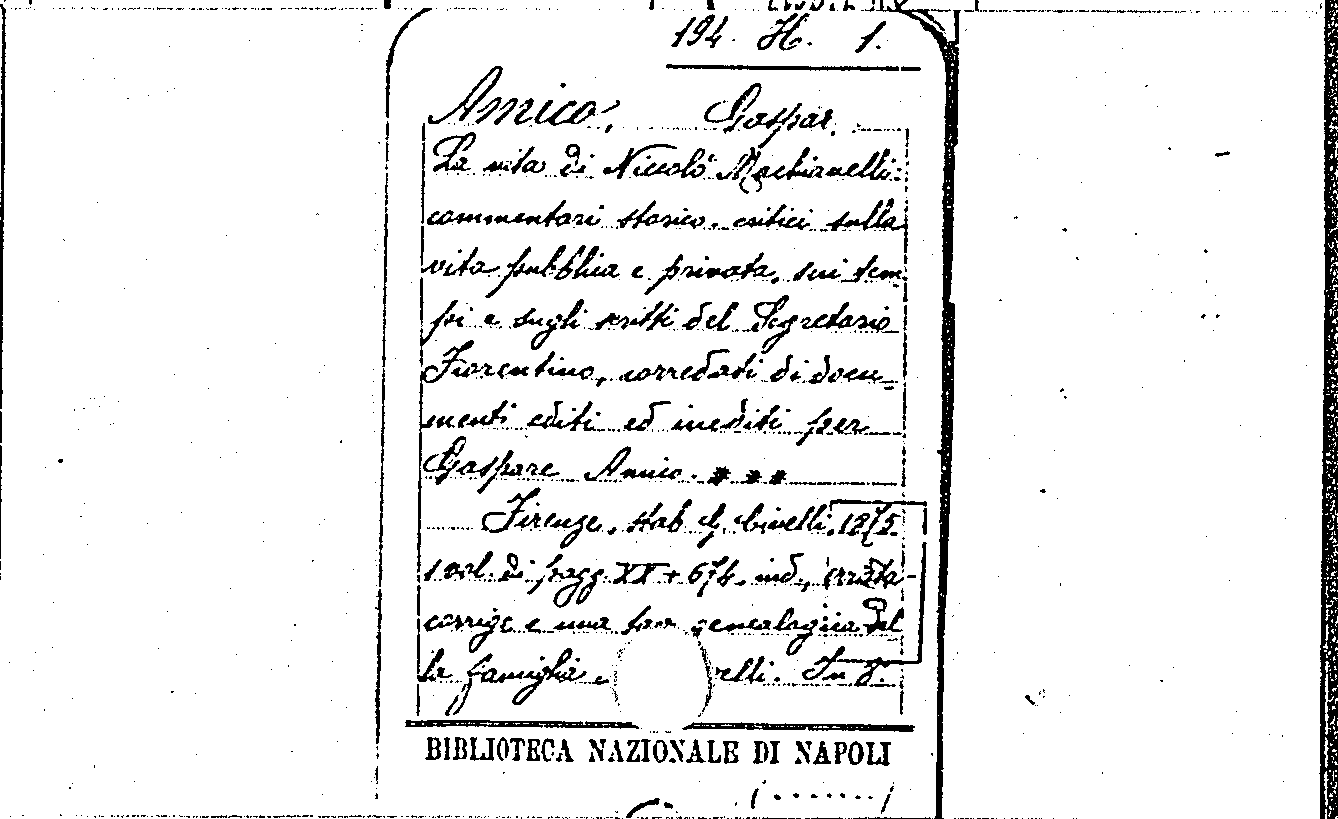 194. H. 1.
Amico, Gaspar.
La vita di Niccolò Machiavelli:
commentari storico-critici sulla
vita pubblica e privata, sui tem-
pi e sugli scritti del Segretario
Fiorentino, corredati di docu-
menti editi ed inediti per
Gaspare Amico. * * *
Firenze, stab G. Civelli, 1875.
1 vol. di pagg. XX + 674. ind., errata-
corrige e una tav genealogica del
la famiglia relli. In 8.
BIBLIOTECA NAZIONALE DI NAPOLI
(.......)